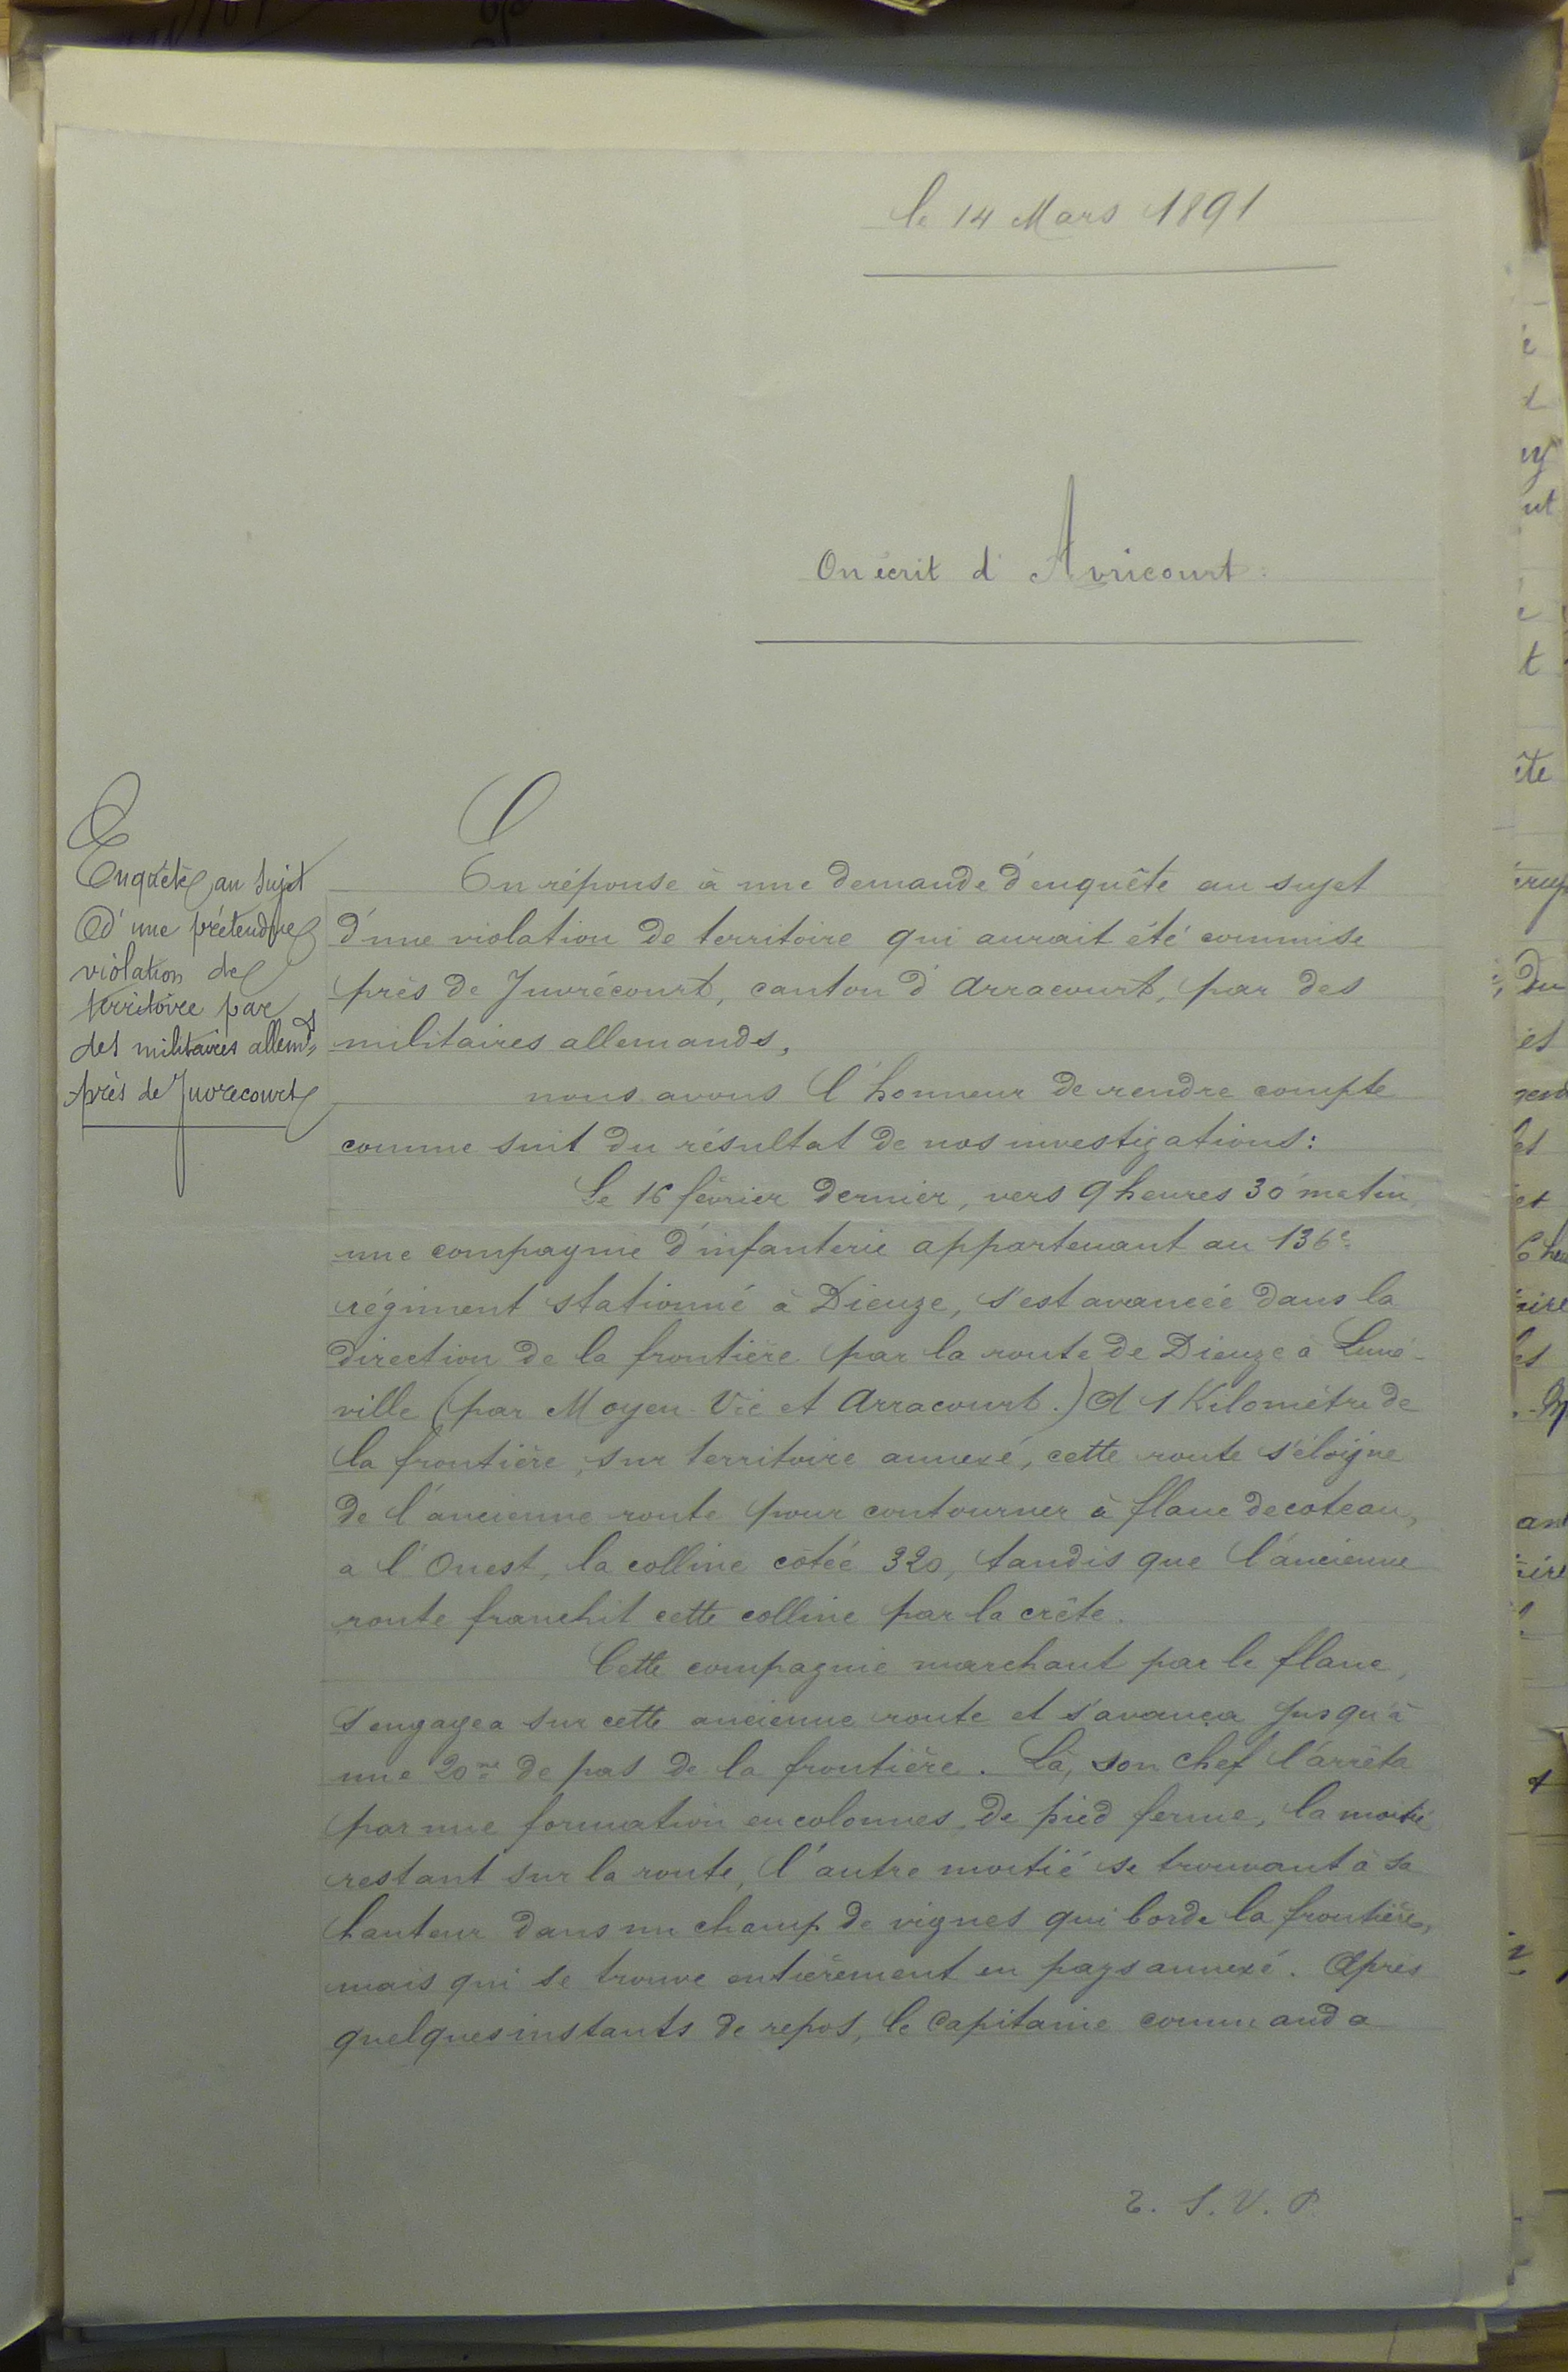 le 14 Mars 1891
On écrit d'Avricourt:
Enquête au sujet
d'une prétendue
violation de
territoire par
des militaires allemds
près de Juvrecourt
En réponse à une demande d'enquête au sujet
d'une violation de territoire qui aurait été commise
près de Juvrécourt, canton d'Arracourt, par des
militaires allemands,
nous avons l'honneur de rendre compte
comme suit du résultat de nos investigations:
Le 16 février dernier, vers 9 heures 30 matin,
une compagnie d'infanterie appartenant au 136e
régiment stationné à Dieuze, s'est avancée dans la
direction de la frontière par la route de Dieuze à Luné-
ville (par Moyen-Vic et Arracourt.) A 1 Kilomètre de
la frontière, sur territoire annexé, cette route s'éloigne
de l'ancienne route pour contourner à flanc de coteau,
a l'Ouest, la colline côtée 320, tandis que l'ancienne
route franchit cette colline par la crête.
Cette compagnie marchant par le flanc,
s'engagea sur cette ancienne route et s'avança jusqu'à
une 20ne de pas de la frontière. Là, son chef l'arrêta
par une formation en colonnes, de pied ferme, la moitié
restant sur la route, l'autre moitié se trouvant à sa
hauteur dans un champ de vignes qui borde la frontière,
mais qui se trouve entièrement en pays annexé. Après
quelques instants de repos, le Capitaine commanda
T. S. V. P.